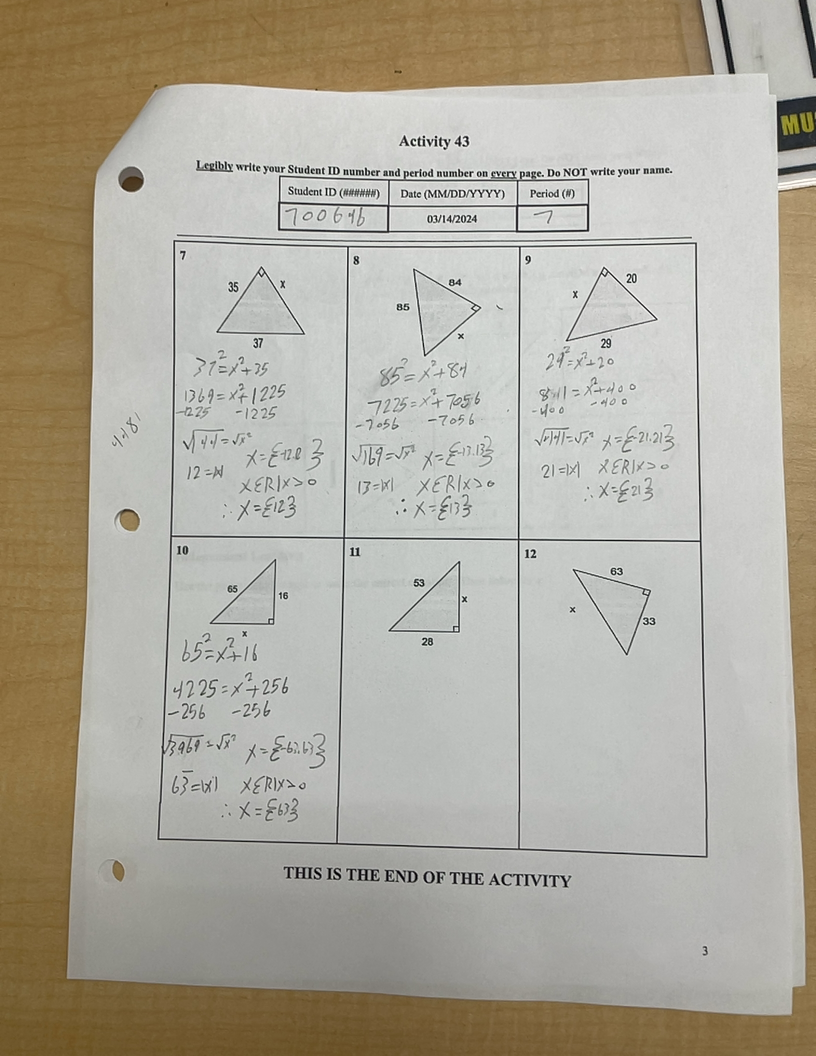 MU
Activity 43
Legibly write your Student ID number and period number on every page. Do NOT write your name.
Student ID (######) Date (MM/DD/YYYY) Period (#)
700646 03/14/2024 7
7
35 x
37
37²=x²+35
1369=x²+1225
-1225 -1225
√144=√x² x={-12.12}
12=|x| xER|x>0
∴ x={12}
8
84
85
x
85²=x²+84
7225=x²+7056
-7056 -7056
√169=√x² x={-13.13}
13=|x| xER|x>0
∴ x={13}
9
20
x
29
29²=x²+20
841=x²+400
-400 -400
√441=√x² x={-21.21}
21=|x| xER|x>0
∴ x={21}
4481
10
65 16
x
65²=x²+16
4225=x²+256
-256 -256
√3969=√x² x={-63.63}
63=|x| xER|x>0
∴ x={63}
11
53
x
28
12
63
x
33
THIS IS THE END OF THE ACTIVITY
3